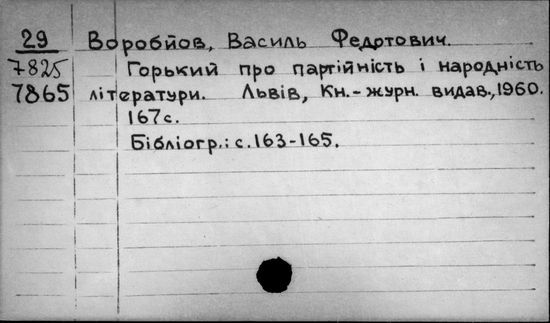 29 Воробйов, Василь Федотович.
7825 Горький про партійність і народність
7865 літератури. Львів, Кн.-журн. видав., 1960.
167 с.
Бібліогр.: с. 163-165.